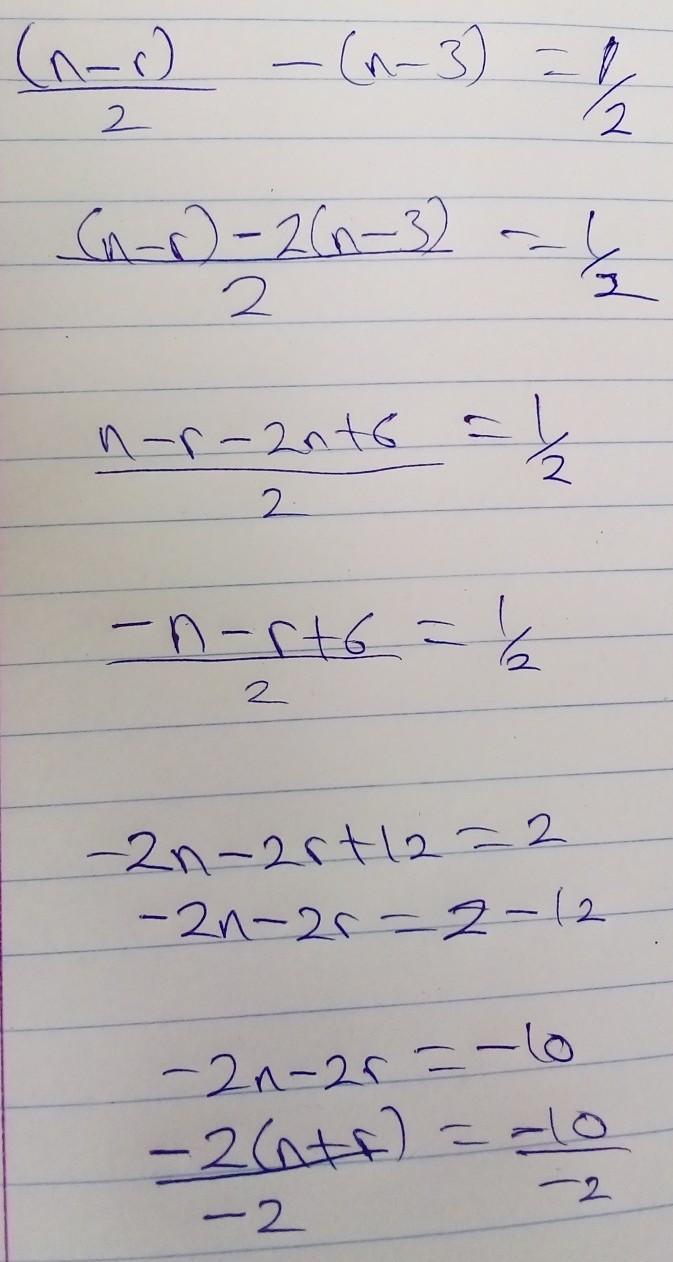 (n-r)/2 - (n-3) = 1/2
(n-r)-2(n-3)/2 = 1/2
n-r-2n+6/2 = 1/2
-n-r+6/2 = 1/2
-2n-2r+12=2
-2n-2r=2-12
-2n-2r=-10
-2(n+r)/-2 = -10/-2